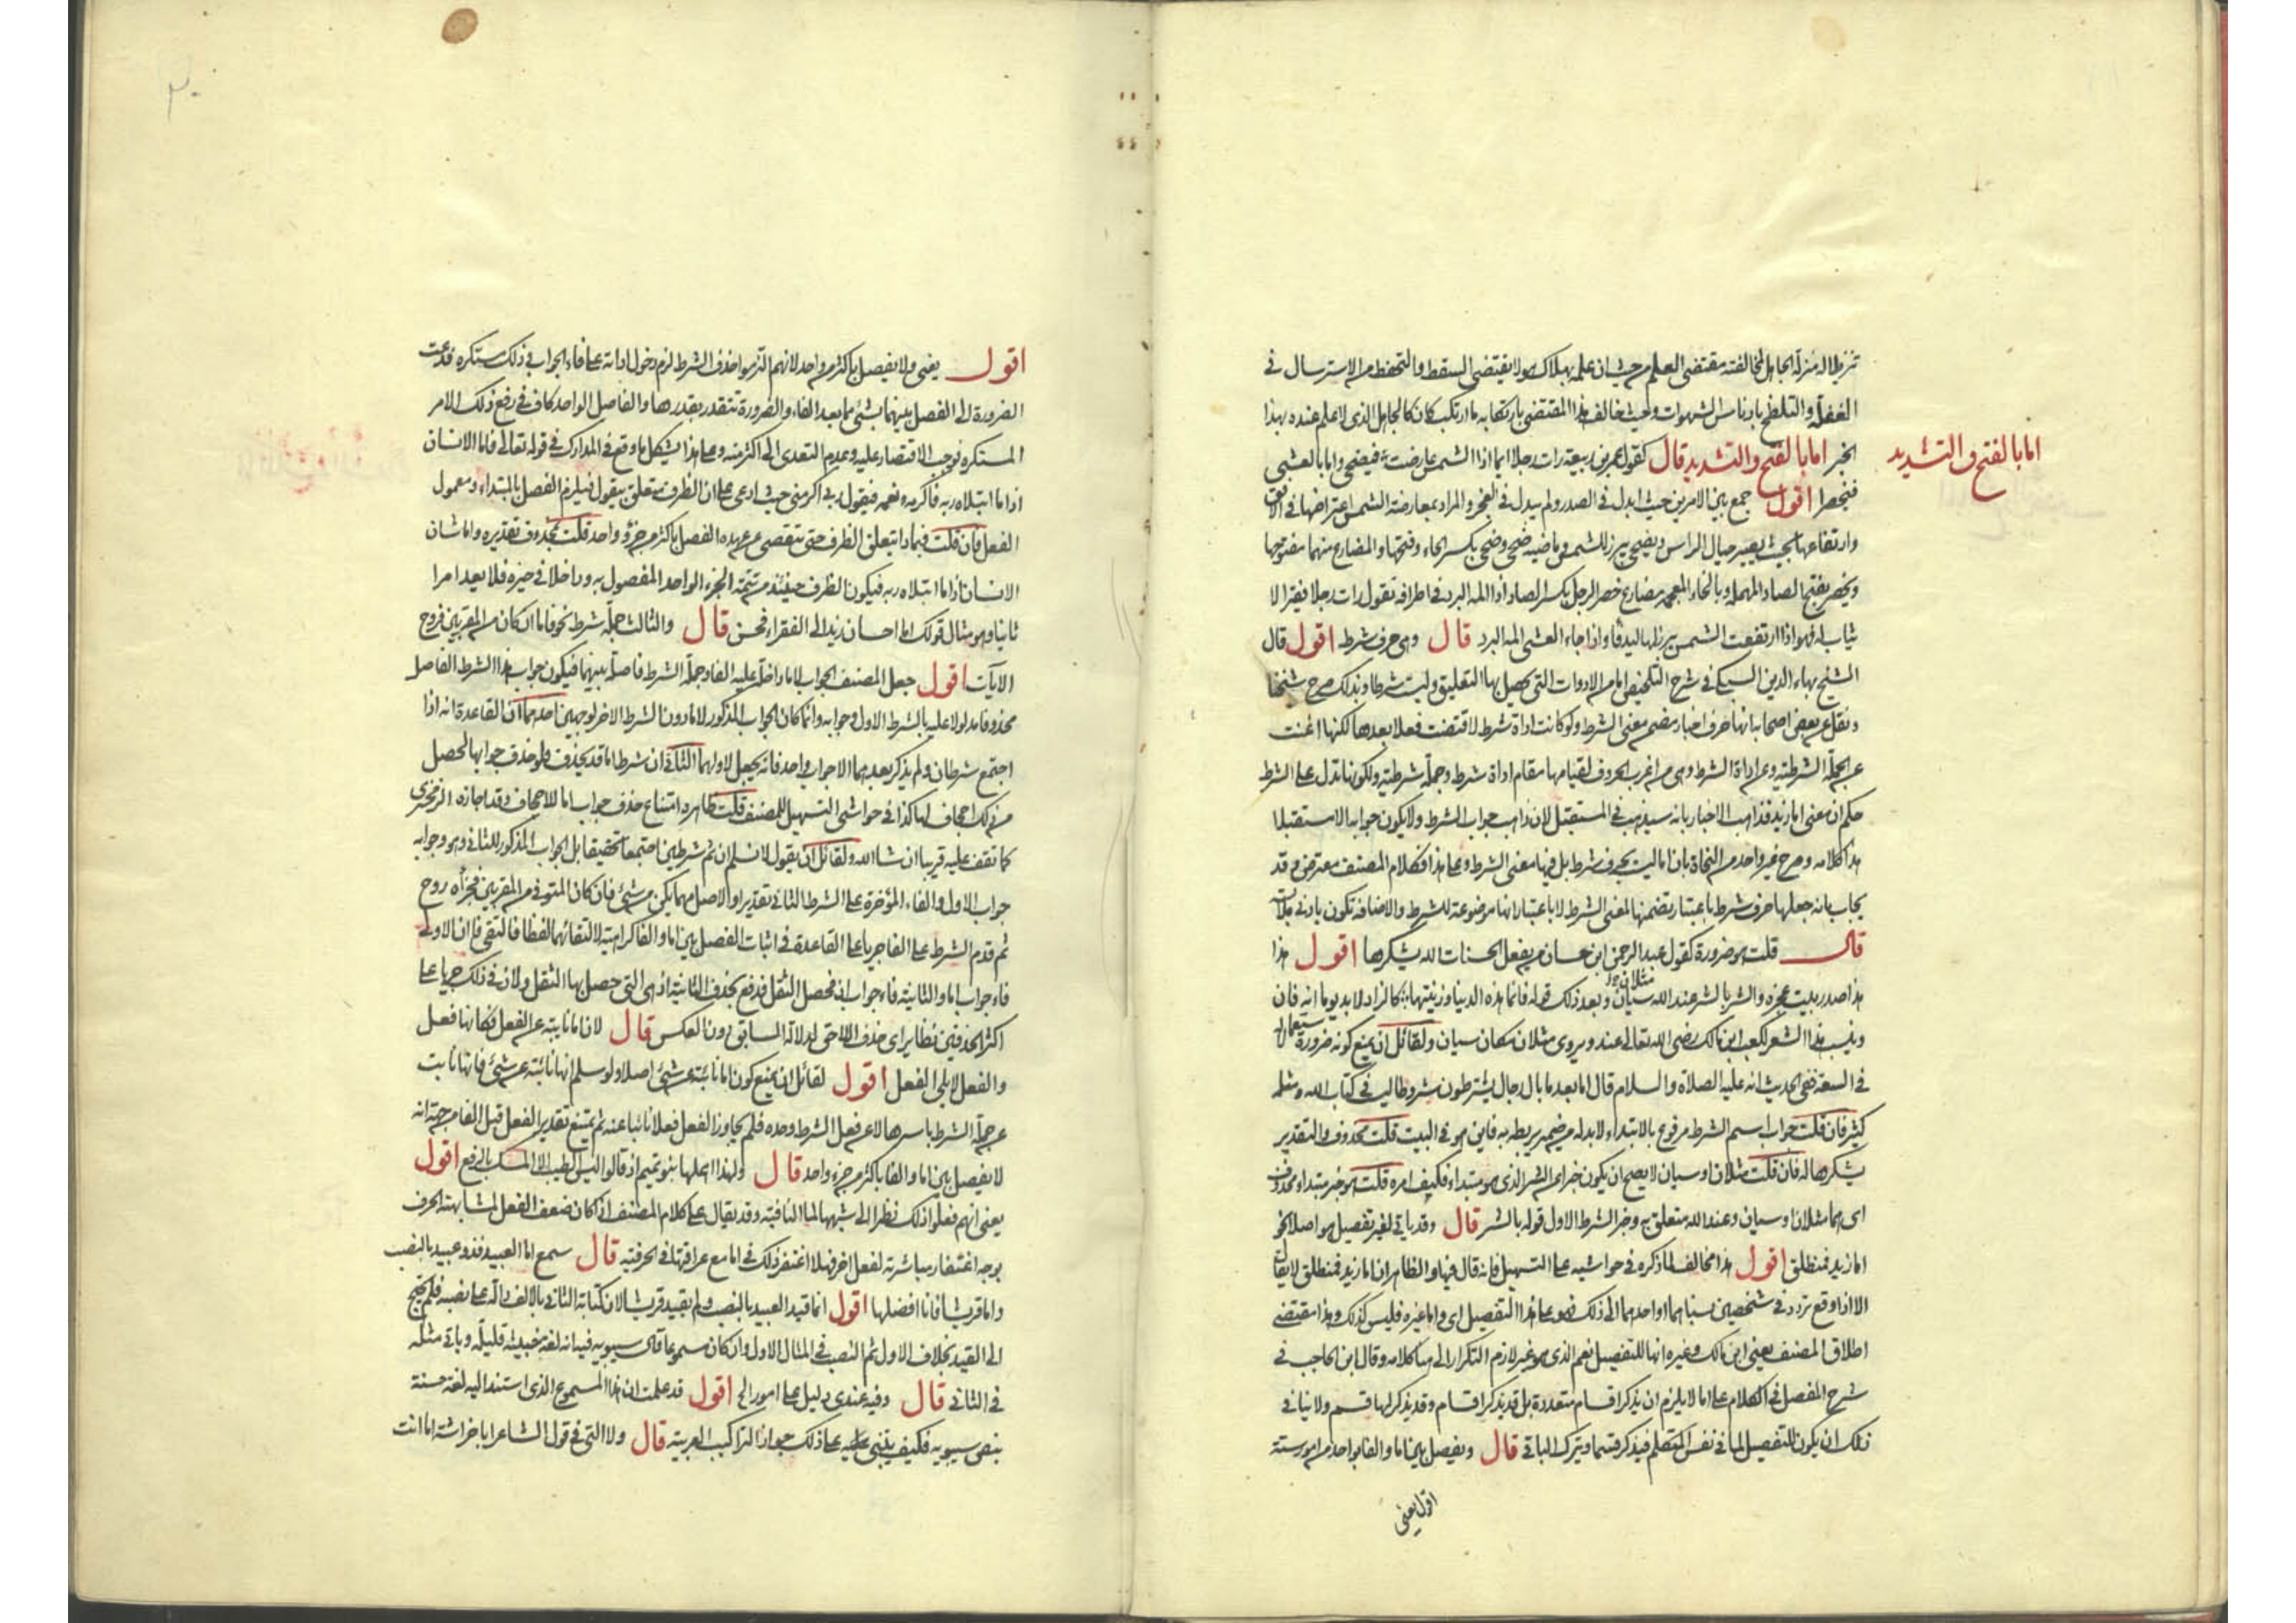 تنزيلا له منزلة الجاهل لمخالفته مقتضى العلم من حيث ان علمه بهلاك هولا يقتضى التيقظ والتحفظ من الاسترسال فى
الغفلة والتلطخ بادناس الشهوات وحيث خالف هذا المقتضى بارتكابه ما ارتكب كان كالجاهل الذى لا علم عنده بهذا
الخبر امابالفتح والتشديد قال كقول عمر بن ربيعة رات رجلا ايما اذا الشمس عارضت فيضحى وايما بالعشى
امابالفتح والتشديد
فيخصر اقول جمع بين الامرين حيث ابدل فى الصدر ولم يبدل فى العجز والمراد بمعارضة الشمس اعتراضها فى الافق
وارتفاعها بحيث يصير حيال الراس ويضحى يبرز للشمس وماضيه ضحى وضحى بكسر الحاء وفتحها والمضارع منهما مفتوحها
ويخصر بفتح الصاد المهملة وبالخاء المعجمة مضارع خصر الرجل بكسر الصاد اذا المه البرد فى اطرافه تقول رات رجلا فقيرا لا
ثياب له فهو اذا ارتفعت الشمس يبرز لها ليدفا واذا جاء العشى المه البرد قال وهى حرف شرط اقول قال
الشيخ بهاء الدين السبكى فى شرح التلخيص اما من الادوات التى يحصل بها التعليق وليست شرطا وبذلك صرح شيخنا
ونقل عن بعض اصحابه انها حرف اخبار مضمن معنى الشرط ولو كانت اداة شرط لاقتضت فعلا بعدها لكنها اغنت
عن الجملة الشرطية وعن اداة الشرط وهى من اغرب الحروف لقيامها مقام اداة شرط وجملة شرطية ولكونها تدل على الشرط
حكم ان معنى اما زيد فذاهب الاخبار بانه سيذهب فى المستقبل لان ذاهب جواب الشرط ولا يكون جوابه الا مستقبلا
هذا كلامه وصرح غير واحد من النحاة بان اما ليست بحرف شرط بل فيها معنى الشرط وعلى هذا فكلام المصنف معترض وقد
يجاب بانه جعلها حرف شرط باعتبار تضمنها لمعنى الشرط لا باعتبار انها موضوعة للشرط والاضافة تكون بادنى ملابسة
قال قلت هو ضرورة كقول عبد الرحمن ابن حسان من يفعل الحسنات الله يشكرها اقول هذا
هذا صدر بيت عجزه والشر بالشر عند الله سيان وبعد ذلك قوله فانما هذه الدنيا وزينتها كالزاد لا بد يوما انه فان
مثلان
وينسب هذا الشعر لكعب ابن مالك رضى الله تعالى عنه ويروى مثلان مكان سيان ولقائل ان يمنع كونه ضرورة
فى السعة ففى الحديث انه عليه الصلاة والسلام قال اما بعد ما بال رجال يشترطون شروطا ليست فى كتاب الله ومثله
كثير فان قلت جواب اسم الشرط مرفوع بالابتداء لابد له من ضمير يربطه به فاين هو فى البيت قلت محذوف والتقدير
يشكرها له فان قلت مثلان او سيان لا يصح ان يكون خبرا عن الشر الذى هو مبتدا فكيف امره قلت هو خبر مبتداء محذوف
اى هما مثلان او سيان وعند الله متعلق به وخبر الشرط الاول قوله بالشر قال وقد ياتى لغير تفصيل اصلا نحو
اما زيد فمنطلق اقول هذا مخالف لما ذكره فى حواشيه على التسهيل فانه قال فيها والظاهر ان اما زيد فمنطلق لا يقال
الا اذا وقع تردد فى شخصين نسباهما او احدهما الى ذلك فهو على هذا التفصيل اى واما غيره فليس كذلك وهذا مقتضى
اطلاق المصنف يعنى ابن مالك وغيره انها للتفصيل نعم الذى هو غير لازم التكرار الى هنا كلامه وقال ابن الحاجب فى
شرح المفصل فى الكلام على اما لا يلزم ان يذكر اقسام متعددة بل قد يذكر اقسام وقد يذكر لها قسم ولا ينافى
ذلك ان يكون للتفصيل لما فى نفس المتكلم فيذكر قسما ويترك الباقى قال ويفصل بين اما والفا بواحد من امور ستة
اقول يعنى
٢٠
اقول يعنى ولا يفصل باكثر من واحد لانهم التزموا حذف الشرط لزم دخول اداته على فاء الجواب وذلك مستكره فدعت
الضرورة الى الفصل بينهما بشئ مما بعد الفاء والضرورة تتقدر بقدرها والفاصل الواحد كاف فى رفع ذلك الامر
المستكره فوجب الاقتصار عليه وعدم التعدى الى اكثر منه وعلى هذا يشكل ما وقع فى المدارك فى قوله تعالى فاما الانسان
اذا ما ابتلاه ربه فاكرمه ونعمه فيقول ربى اكرمنى حيث ادعى على ان الظرف متعلق بيقول فيلزم الفصل بالمبتداء ومعمول
الفعل فان قلت فبماذا يتعلق الظرف حتى نتقصى عن عهدة الفصل باكثر من جزؤ واحد قلت بمحذوف تقديره واما شان
الانسان اذا ما ابتلاه ربه فيكون الظرف حينئذ من تتمة الجزء الواحد المفصول به وداخلا فى حيزه فلا يعد امرا
ثانيا وهو مثال قولك اما احسان زيد الى الفقراء فحسن قال والثالث جملة شرط نحو فاما ان كان من المقربين فروح
الآيات اقول جعل المصنف الجواب لاما داخلة عليه الفا وجملة الشرط فاصلة بينهما فيكون جواب هذا الشرط الفاصل
محذوفا مدلولا عليه بالشرط الاول وجوابه وانما كان الجواب المذكور لاما دون الشرط الاخر لوجهين احدهما ان القاعدة انه اذا
اجتمع شرطان ولم يذكر بعدهما الا جواب واحد فانه يجعل لاولهما الثانى ان شرط اما قد يحذف فلو حذف جوابها لحصل
من ذلك اجحاف لها كذا فى حواشى التسهيل للمصنف قلت ظاهره امتناع حذف جواب اما للاجحاف وقد اجازه الزمخشرى
كما تقف عليه قريبا ان شا الله ولقائل ان يقول لا نسلم ان ثم شرطين اجتمعا تحقيقا بل الجواب المذكور للثانى وهو وجوابه
جواب الاول والفاء المؤخرة على الشرط الثانى تقديرا والاصل مهما يكن من شئ فان كان المتوفى من المقربين فجزاؤه روح
ثم قدم الشرط على الفا جريا على القاعدة فى اثبات الفصل بين اما والفا كراهية لالتقائهما لفظا فالتقى فا ان الاولى
فاء جواب اما والثانية فاء جواب ان فحصل الثقل فدفع بحذف الثانية اذ هى التى حصل بها الثقل ولان فى ذلك جريا على
اكثر الحذفين نظاير اى حذف اللاحق لدلالة السابق دون العكس قال لان اما نايبة عن الفعل فكانها فعل
والفعل لا يلى الفعل اقول لقائل ان يمنع كون اما نائبة عن شئ اصلا ولو سلم انها نائبة عن شئ فانها نابت
عن جملة الشرط باسرها لا عن فعل الشرط وحده فلم يجاوز الفعل فعلا نائبا عنه ثم يمتنع تقدير الفعل قبل الفا من جهة انه
لا يفصل بين اما والفا باكثر من جزء واحد قال ولهذا اهملها بنو تميم اذ قالوا ليس الطيب الا المسك بالرفع اقول
يعنى انهم فعلوا ذلك نظرا الى شبهها لما النافية وقد يقال على كلام المصنف اذا كان ضعف الفعل لمشابهته الحرف
يوجه اغتفار مباشرته لفعل اخر فهلا اغتفر ذلك فى اما مع عراقتها فى الحرفية قال سمع اما العبيد فذو عبيد بالنصب
واما قريشا فانا افضلها اقول انما قيد العبيد بالنصب ولم يقيد قريشا لان كتابة الثانى بالالف دالة على نصبه فلم يحتج
الى القيد بخلاف الاول ثم النصب فى المثال الاول وان كان مسموعا قال سيبويه فيه انه لغة خبيثة قليلة وياتى مثله
فى الثانى قال وفيه عندى دليل على امور الخ اقول قد علمت ان هذا المسموع الذى استند اليه لغة حسنة
بنص سيبويه فكيف ينبنى عليه على ذلك جواز التراكيب العربية قال ولا التى فى قول الشاعر اباخراشة اما انت